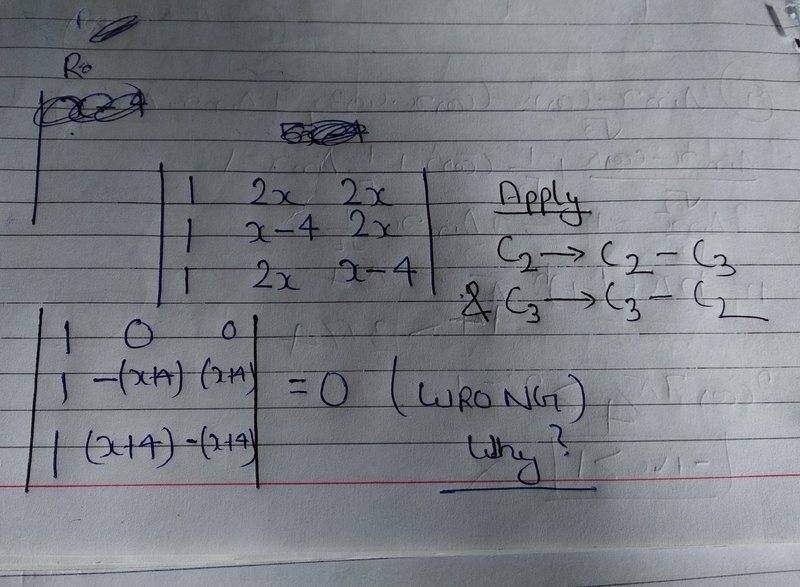 Ro
| 1 2x 2x |
| 1 x-4 2x |
| 1 2x x-4 |
Apply
C₂ → C₂ - C₃
& C₃ → C₃ - C₂
| 1 0 0 |
| 1 -(x+4) (x+4) | = 0 (WRONG)
| 1 (x+4) -(x+4) |
Why?